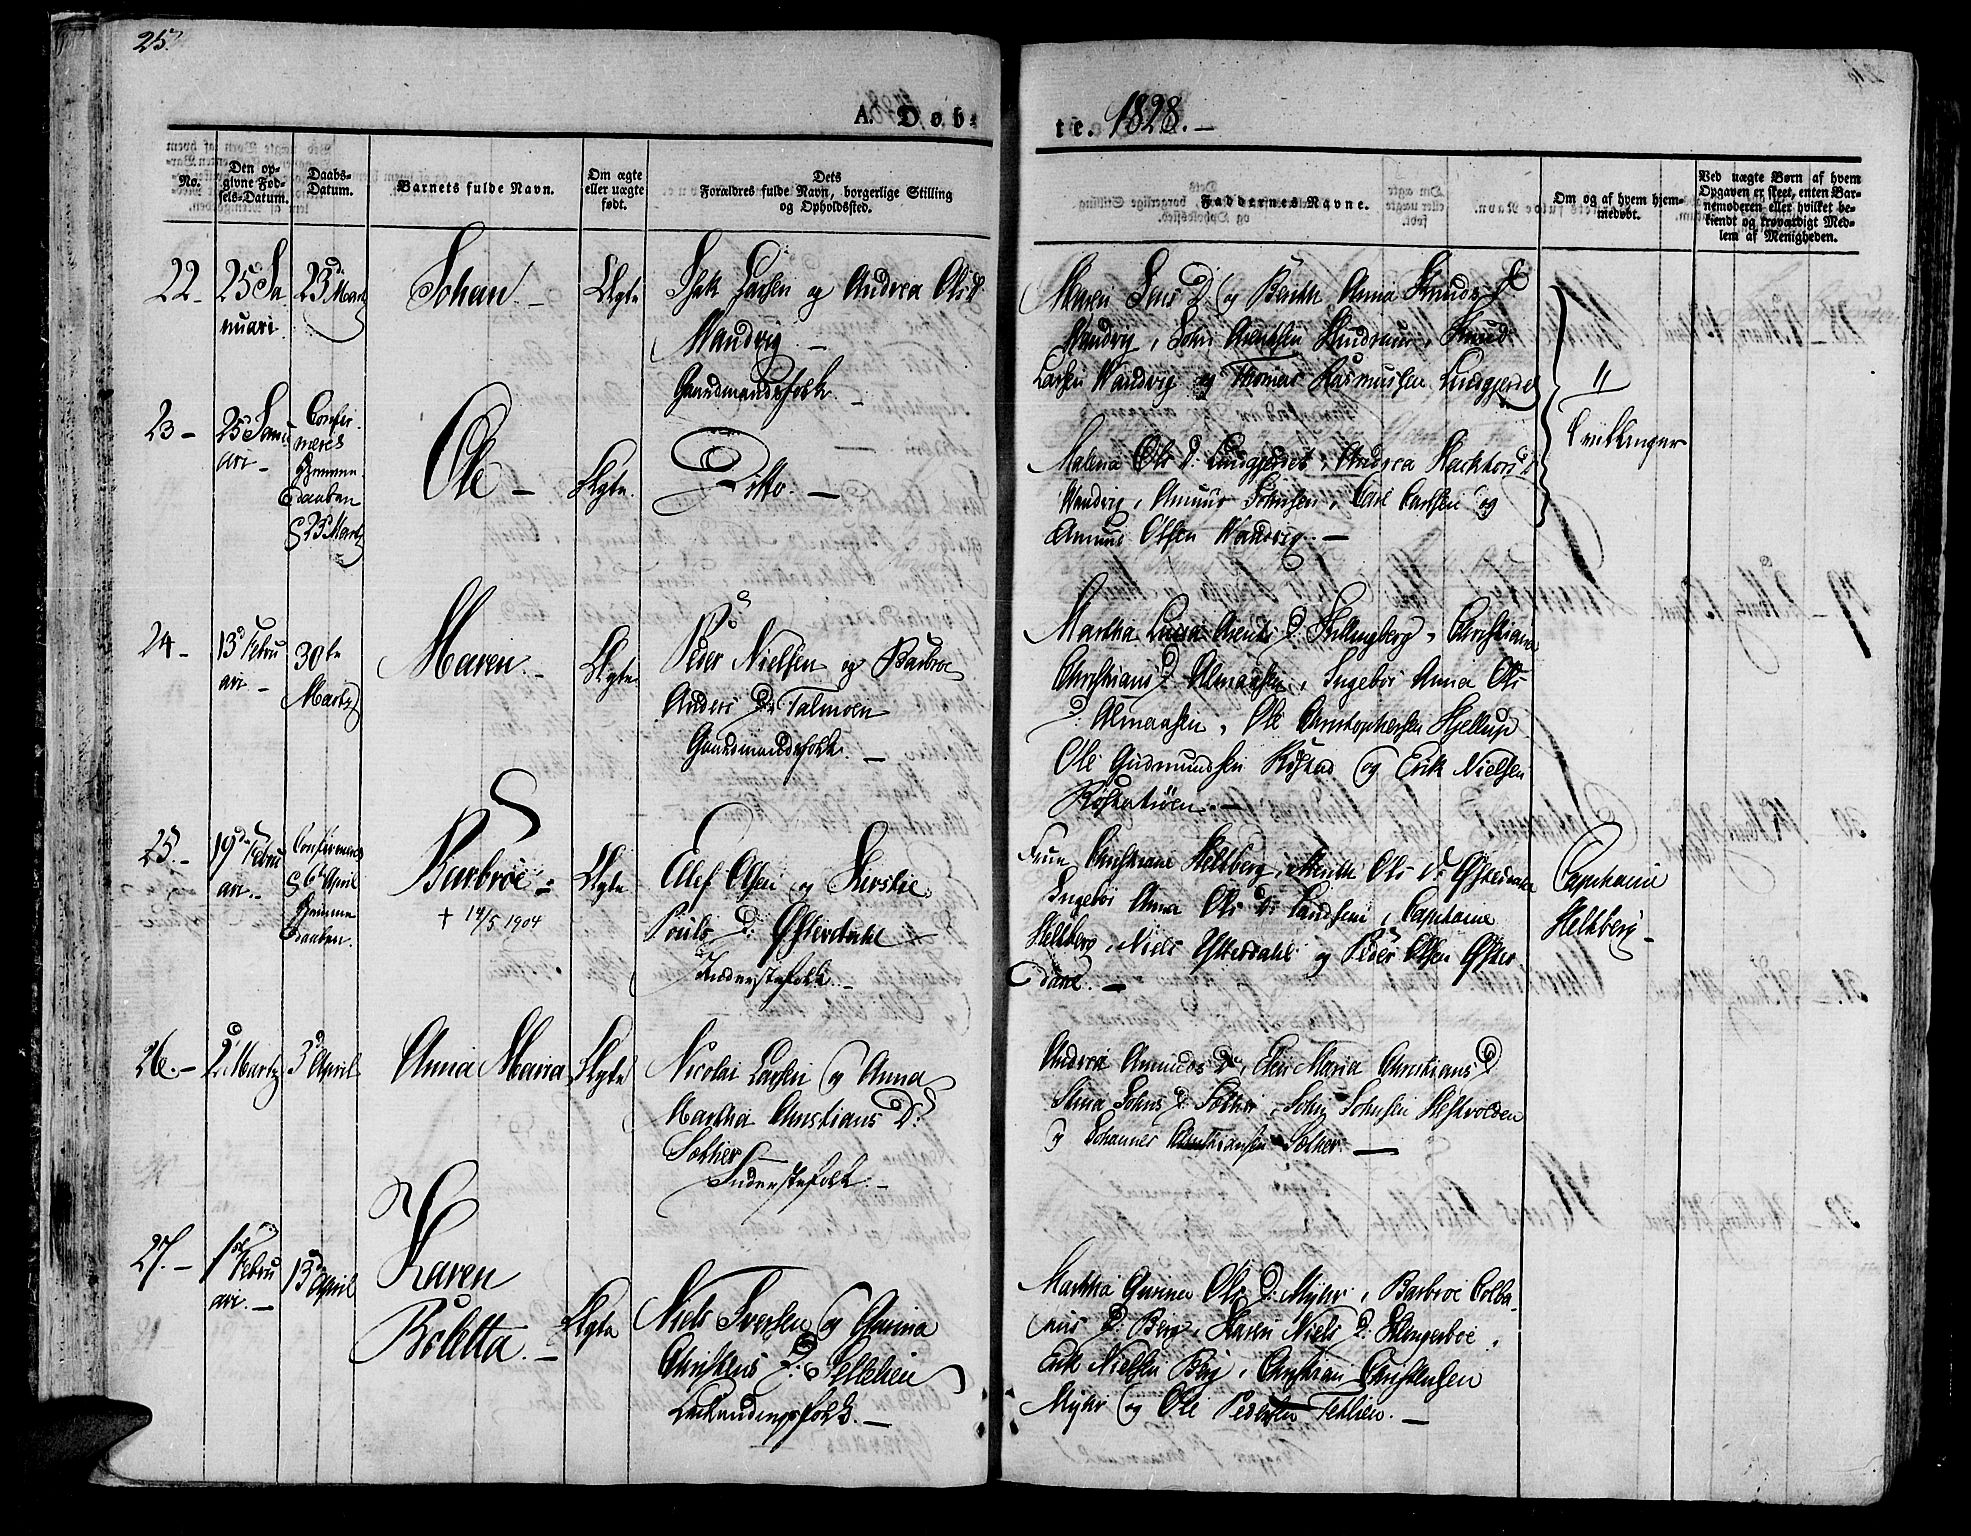 25.
A. Døb-
te. 1828. –
No.
Den op-
givne Fød-
sels-Datum.
Daabs-
Datum.
Barnets fulde Navn.
Om ægte
eller uægte
født.
Dets
Forældres fulde Navn, borgerlige Stilling
og Opholdssted.
Faddernes Navne.
Om og af hvem hjem-
medøbt.
Ved uægte Børn af hvem
Opgaven er skeet, enten Bar-
nemoderen eller hvilket be-
kiendt og troværdigt Med-
lem af Menigheden.
22 –
25 Ja
nuari
23d Martz
Johan. –
Ægte
Isak Larsen og Andrea Ols D.
Wandvig. –
Gaardmandsfolk –
Maren Lars D. og Berith Anna Knuds D.
Wandvig, John Arentsen Knud
Larsen Wandvig og Thomas Rasmussen Lundgjerdet
"
Tvillinger
23 –
25 Janu
ari –
Confir-
meres
Hjemme
Daaben
d 23 Martz
Ole –
Ægte.
Ditto. –
Malena Ols D. Lundgjerdet, Andrea
Wandvig, Amund Johnsen, Carl Larsen og
Amund Olsen Wandvig. –
24 –
13d Febru
ari –
30te
Martz
Maren. –
Ægte.
Peder Nielsen og Barbroe
Anders D. Talmoen
Gaardmandsfolk. –
Martha Lucia Arents D. Hellingberg, Christiana
Christians D. Almaasen, Ingebor Anna Ols
D. Almaasen, Ole Christophersen Hjellup
Ole Gudmundsen Røstad og Erik Nielsen
–
25. –
19d Febru
ari. –
Confirmeres
d 6te April
Hjemme
Daaben.
Barbroe –
+ 14/5 1904
Ægte
Ellef Olsen og Kirstie
Pouls D. Østerdahl
Inderstefolk. –
Frue Christiane Heltberg, Berith Ols D. Østerdahl
Ingebor Anna Ols D. , Capitaine
Heltberg, Niels Østerdahl og Peder Olsen Øster
dahl. –
Capitaine
Heltberg –
26. –
2d Martz
3d April
Anna Maria
Ægte
Nicolai Larsen og Anna
Martha Christians D.
Sother
Inderstefolk. –
Andrea Amunds D., Elen Maria Christians D
Anna Johns D. Sother, John Johnsen Hestvolden
og Johannes Christiansen Sother. –
27. –
1ste Febru
ari. –
13d April
Karen
Boletta. –
Ægte
Niels Iversen og Gurina
Christens D.
folk. –
Martha Gurina Ols D. Myhr, Barbroe Colbe-
rns D. Berg, Karen Niels D. ,
Erik Nielsen Berg, Christian Christensen
Myhr og Ole Pedersen . –